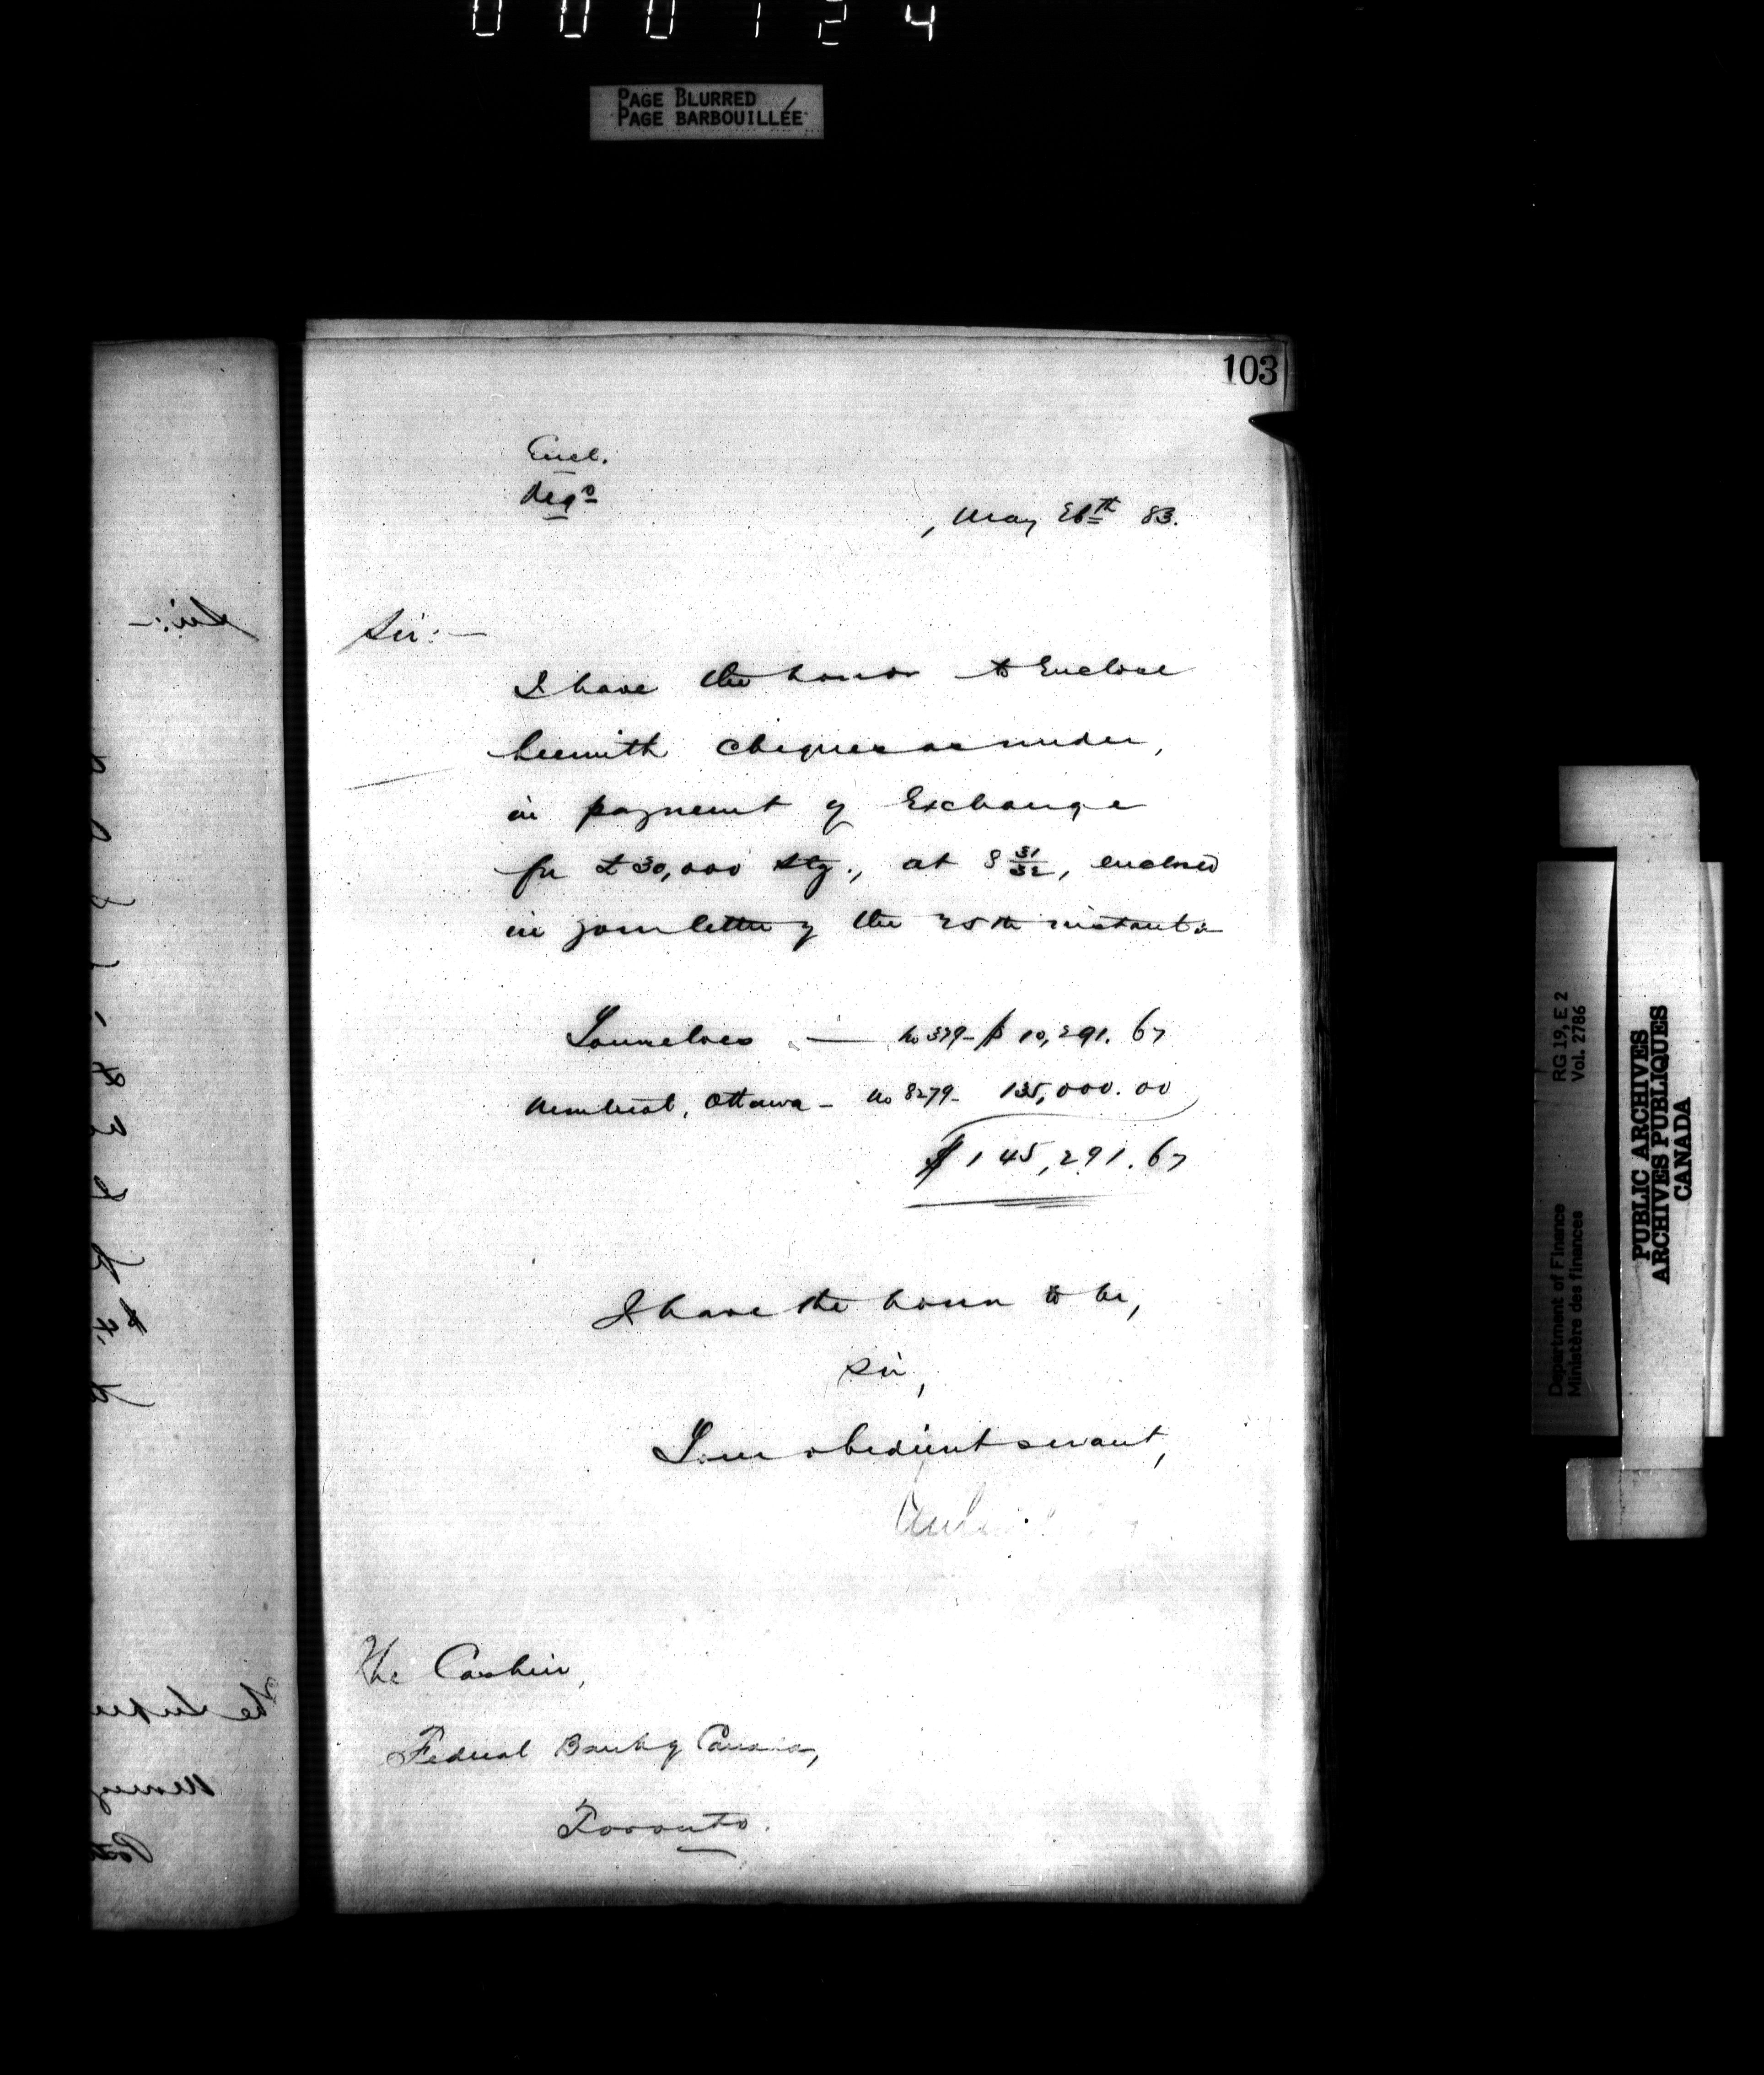 000124
PAGE BLURRED
PAGE BARBOUILLÉE
103
Encl.
Regd
, May 26th 83.
Sir:—
I have the honor to Enclose
herewith cheques as under,
in payment of Exchange
for £30,000 Stg., at 8 31/32, enclosed
in your letter of the 25th instant:-
Yourselves — No 379- $ 10,291.67
Montreal, Ottawa - No 8279- 135,000.00
$145,291.67
I have the honor to be,
Sir,
Your obedient servant,
The Cashier,
Federal Bank of Canada,
Toronto.
Sir:-
The
Money
RG 19, E 2
Vol. 2786
Department of Finance
Ministère des finances
PUBLIC ARCHIVES
ARCHIVES PUBLIQUES
CANADA